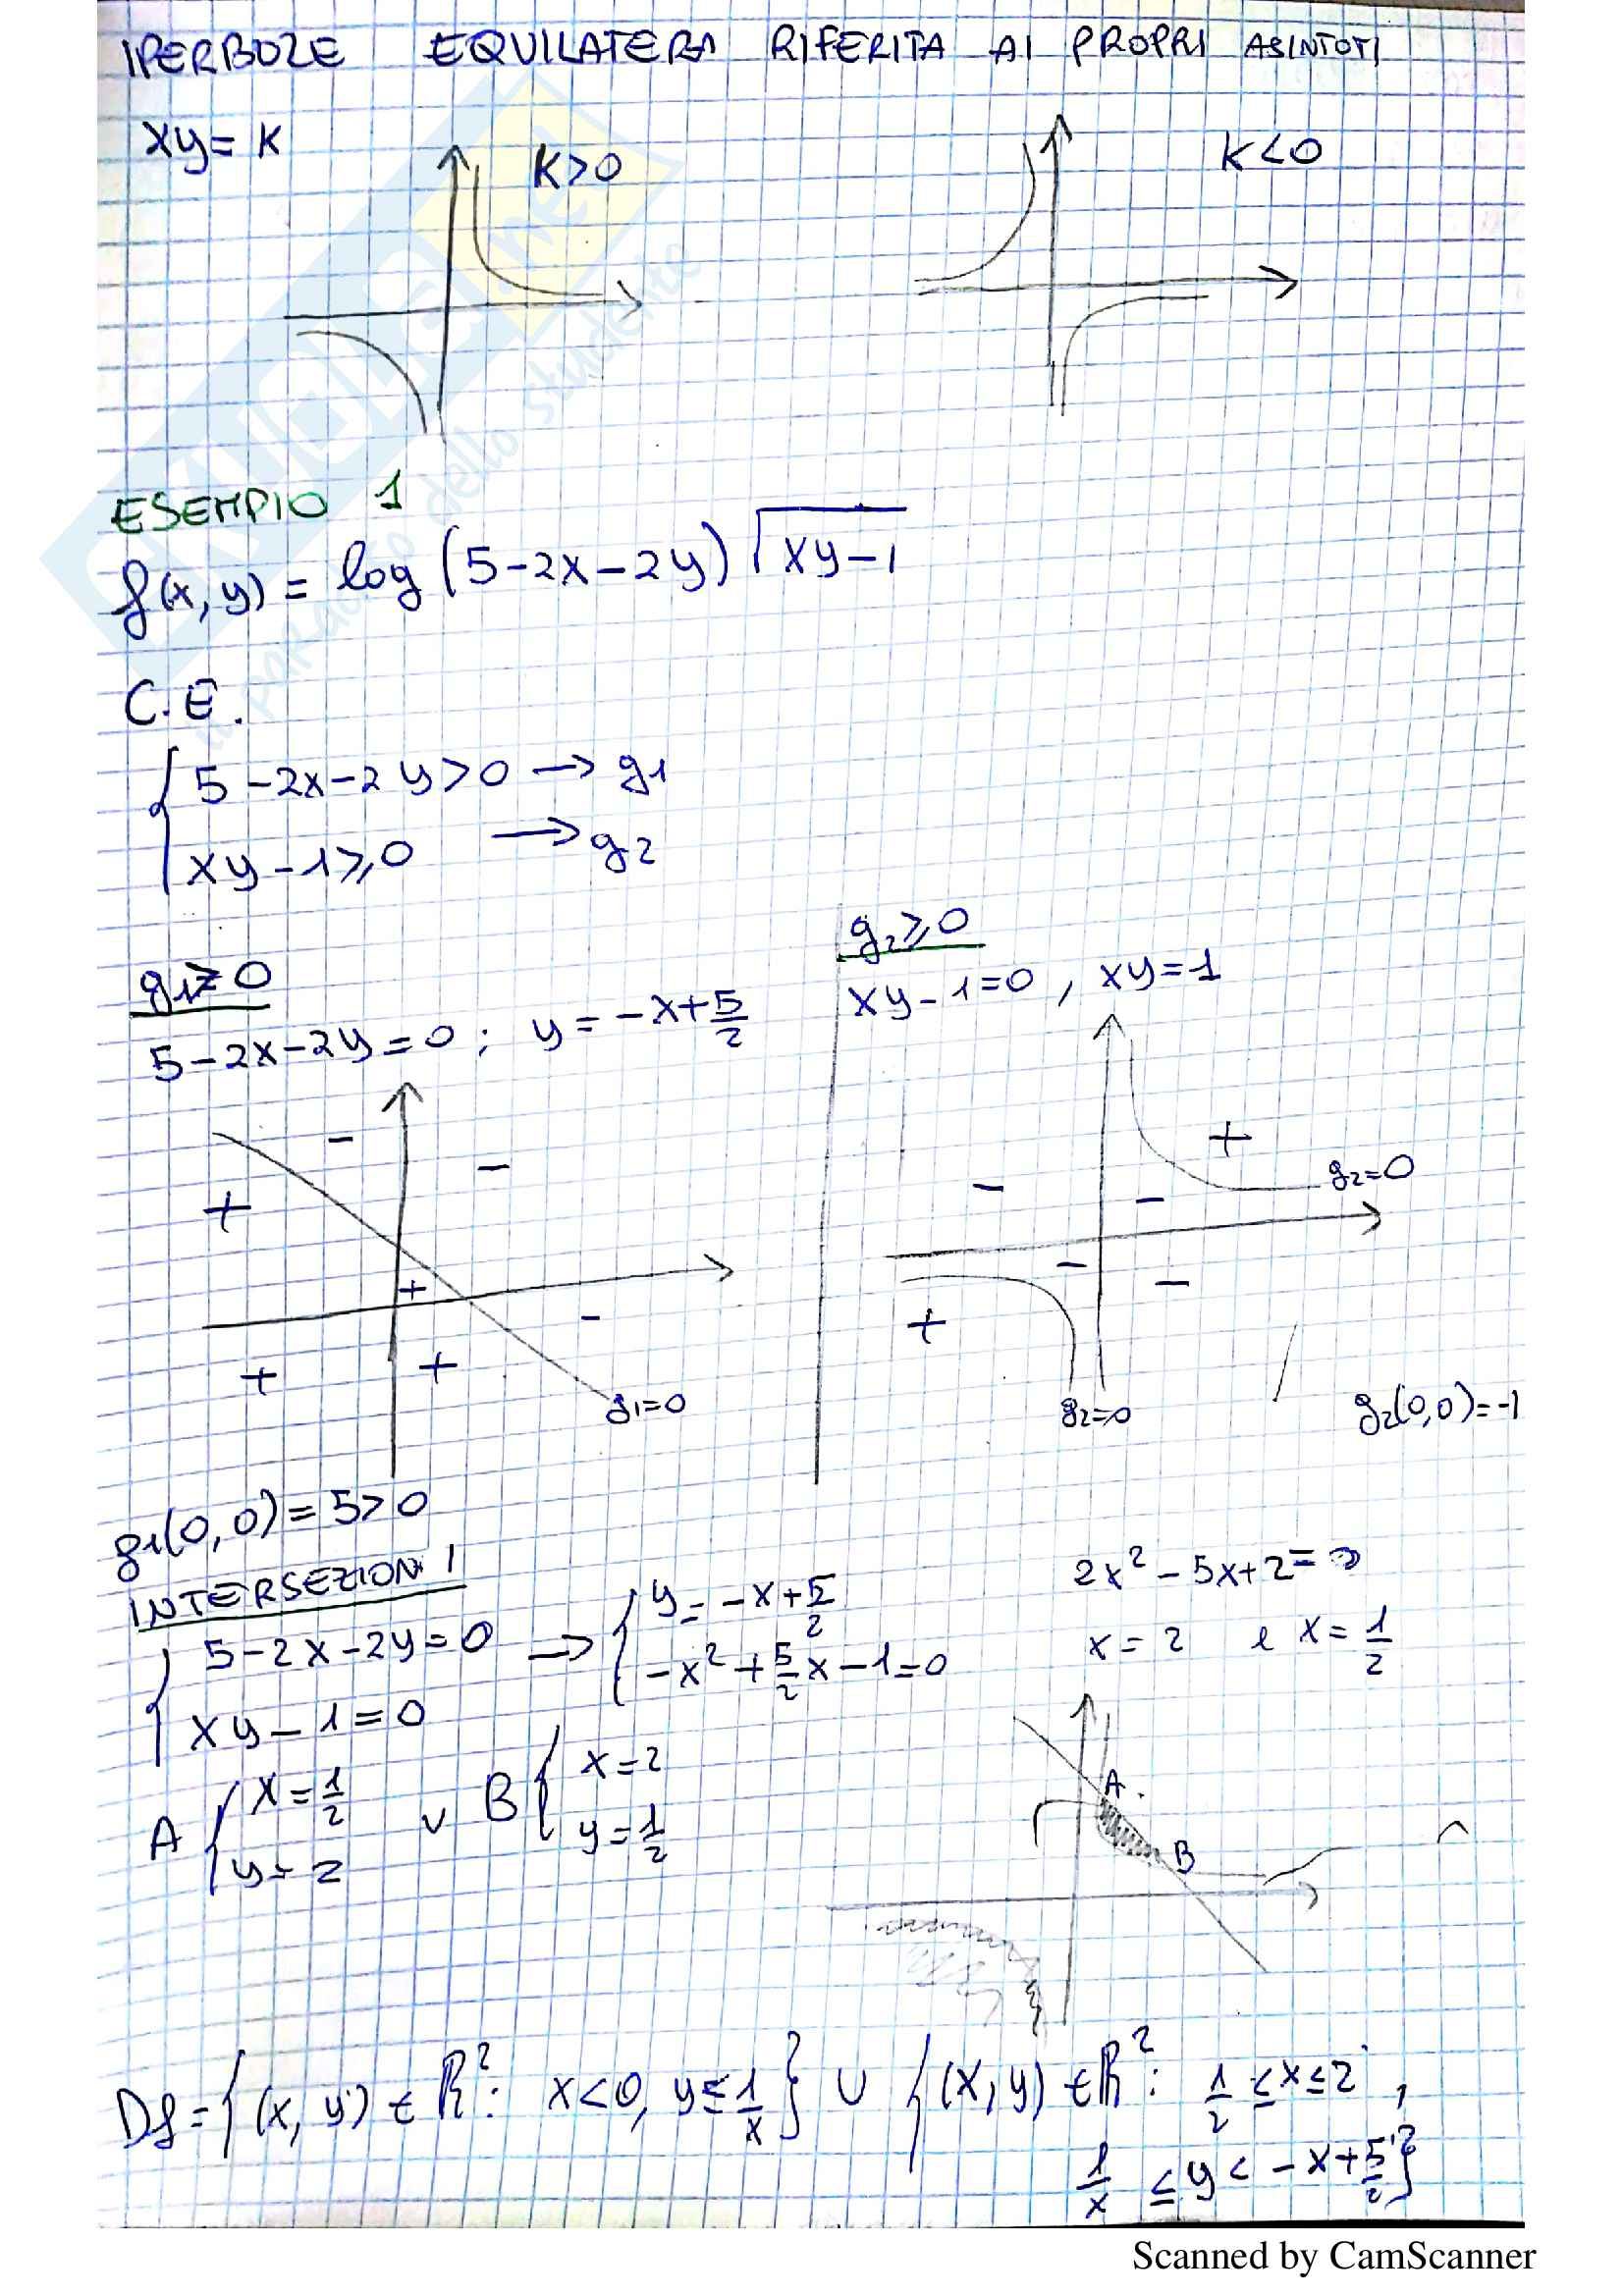 IPERBOLE EQUILATERA RIFERITA AI PROPRI ASINTOTI
xy = K
K>0
K<0
ESEMPIO 1
f(x, y) = log (5-2x-2y) √(xy-1)
C.E.
{ 5-2x-2y>0 → g1
{ xy-1⩾0 → g2
g1⩾0
5-2x-2y=0 ; y = -x+5/2
-
-
+
+
-
+
+
g1=0
g1(0,0) = 5>0
g2⩾0
xy-1=0 , xy=1
+
g2=0
-
-
-
-
+
g2=0
g2(0,0)=-1
INTERSEZIONI
{ 5-2x-2y=0 → { y = -x+5/2
{ xy-1=0 { -x²+5/2x-1=0
2x²-5x+2=0
x=2 e x=1/2
A { x=1/2 ∨ B { x=2
{ y=2 { y=1/2
A
B
Df={(x, y) ∈ ℝ²: x<0, y≤1/x} ∪ {(x, y) ∈ ℝ²: 1/2≤x≤2,
1/x ≤y< -x+5/2}
Scanned by CamScanner
SKUOLA.net
il paradiso dello studente